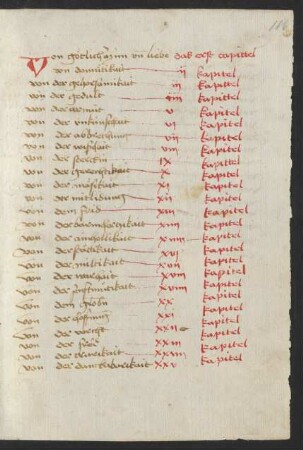 186
Von götlicher minn vn liebe das erst capittel
von demütikait ii kapitel
von der gehorsamikait iii kapitel
von der gedult iiii kapitel
von der armüt v kapitel
von der unkünschait vi kapitel
von der abbrechung vii kapitel
von der wishait viii kapitel
von der sterckin ix kapitel
von der gerechtikait x kapitel
von der mässikait xi kapitel
von der mitlidung xii kapitel
von dem frid xiii kapitel
von der barmhertzikait xiiii kapitel
von der kapitel
von der xvi kapitel
von der miltikait xvii kapitel
von der warhait xviii kapitel
von der xviiii kapitel
von dem globen xx kapitel
von der hoffnung xxi kapitel
von der vorcht xxii kapitel
von der fröd xxiii kapitel
von der xxiiii kapitel
von der danckberkait xxv kapitel